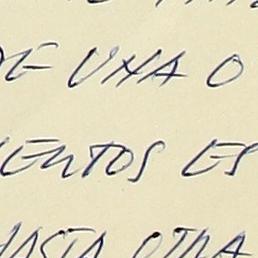 DE UNA O
IENTOS ES
HASTA OTRA